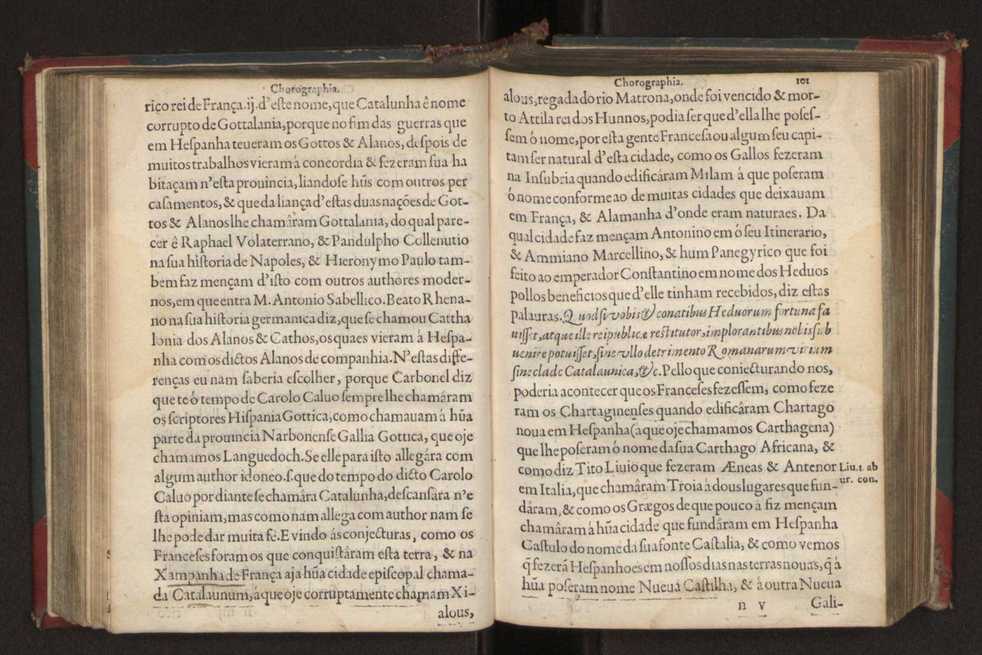 Chorographia.
riço rei de França.ij.d'este nome, que Catalunha ê nome
corrupto de Gottalania, porque no fim das guerras que
em Hespanha teueram os Gottos & Alanos, despois de
muitos trabalhos vieram á concordia & fezeram sua ha
bitaçam n'esta prouincia, liandose hũs com outros per
casamentos, & que da liança d'estas duas nações de Got-
tos & Alanos lhe chamâram Gottalania, do qual pare-
cer ê Raphael Volaterrano, & Pandulpho Collenutio
na sua historia de Napoles, & Hieronymo Paulo tam-
bem faz mençam d'isto com outros authores moder-
nos, em que entra M. Antonio Sabellico. Beato Rhena-
no na sua historia germanica diz, que se chamou Cattha
lonia dos Alanos & Cathos, os quaes vieram â Hespa-
nha com os dictos Alanos de companhia. N'estas diffe-
renças eu nam saberia escolher, porque Carbonel diz
que te ó tempo de Carolo Caluo sempre lhe chamâram
os scriptores Hispania Gottica, como chamauam á hũa
parte da prouincia Narbonense Gallia Gottica, que oje
chamamos Languedoch. Se elle para isto allegára com
algum author idoneo.s.que do tempo do dicto Carolo
Caluo por diante se chamâra Catalunha, descansâra n'e
sta opiniam, mas como nam allega com author nam se
lhe pode dar muita fé. E vindo ás conjecturas, como os
Franceses foram os que conquistâram esta terra, & na
Xampanha de França aja hũa cidade episcopal chama-
da Catalaunum, aque oje corruptamente chamam Xi-
alous,
Chorographia. 101
alous, regada do rio Matrona, onde foi vencido & mor-
to Attila rei dos Hunnos, podia ser que d'ella lhe poses-
sem ó nome, por esta gente Francesa ou algum seu capi-
tam ser natural d'esta cidade, como os Gallos fezeram
na Insubria quando edificâram Milam á que poseram
ó nome conforme ao de muitas cidades que deixauam
em França, & Alamanha d'onde eram naturaes. Da
qual cidade faz mençam Antonino em ó seu Itinerario,
& Ammiano Marcellino, & hum Panegyrico que foi
feito ao emperador Constantino em nome dos Heduos
pollos beneficios que d'elle tinham recebidos, diz estas
palauras. Quod si vobis & conatibus Heduorum fortuna fa
uisset, atque ille reipublicæ restitutor, implorantibus nobis sub
uenire potuisset, sine vllo detrimento Romanarum virium
sine clade Catalaunica, &c. Pello que coniecturando nos,
poderia acontecer que os Franceses fezessem, como feze
ram os Chartaginenses quando edificâram Chartago
noua em Hespanha (a que oje chamamos Carthagena)
que lhe poseram ó nome da sua Carthago Africana, &
como diz Tito Liuio que fezeram Æneas & Antenor Liu. 1. ab
em Italia, que chamâram Troia á dous lugares que fun- ur. con.
dâram, & como os Grægos de que pouco á fiz mençam
chamâram á hũa cidade que fundâram em Hespanha
Castulo do nome da sua fonte Castalia, & como vemos
q̃ fezerã Hespanhoes em nossos dias nas terras nouas, q̃ á
hũa poseram nome Nueua Castilha, & á outra Nueua
n v Gali-